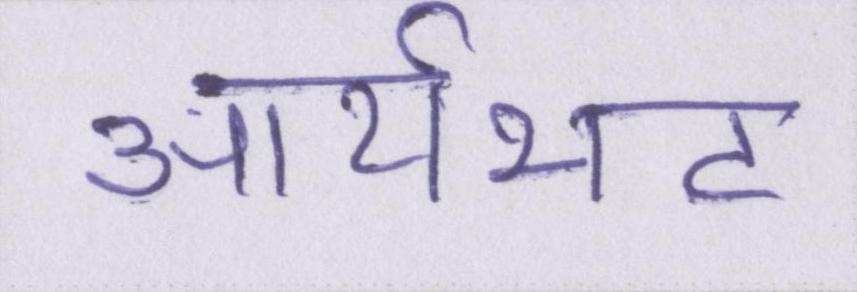 आर्यभट